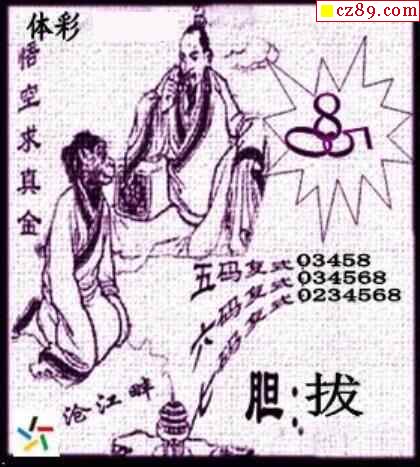 cz89.com
体彩
悟空求真金
8
057
五码复式03458
六码复式034568
七码复式0234568
沧江畔
胆:拔